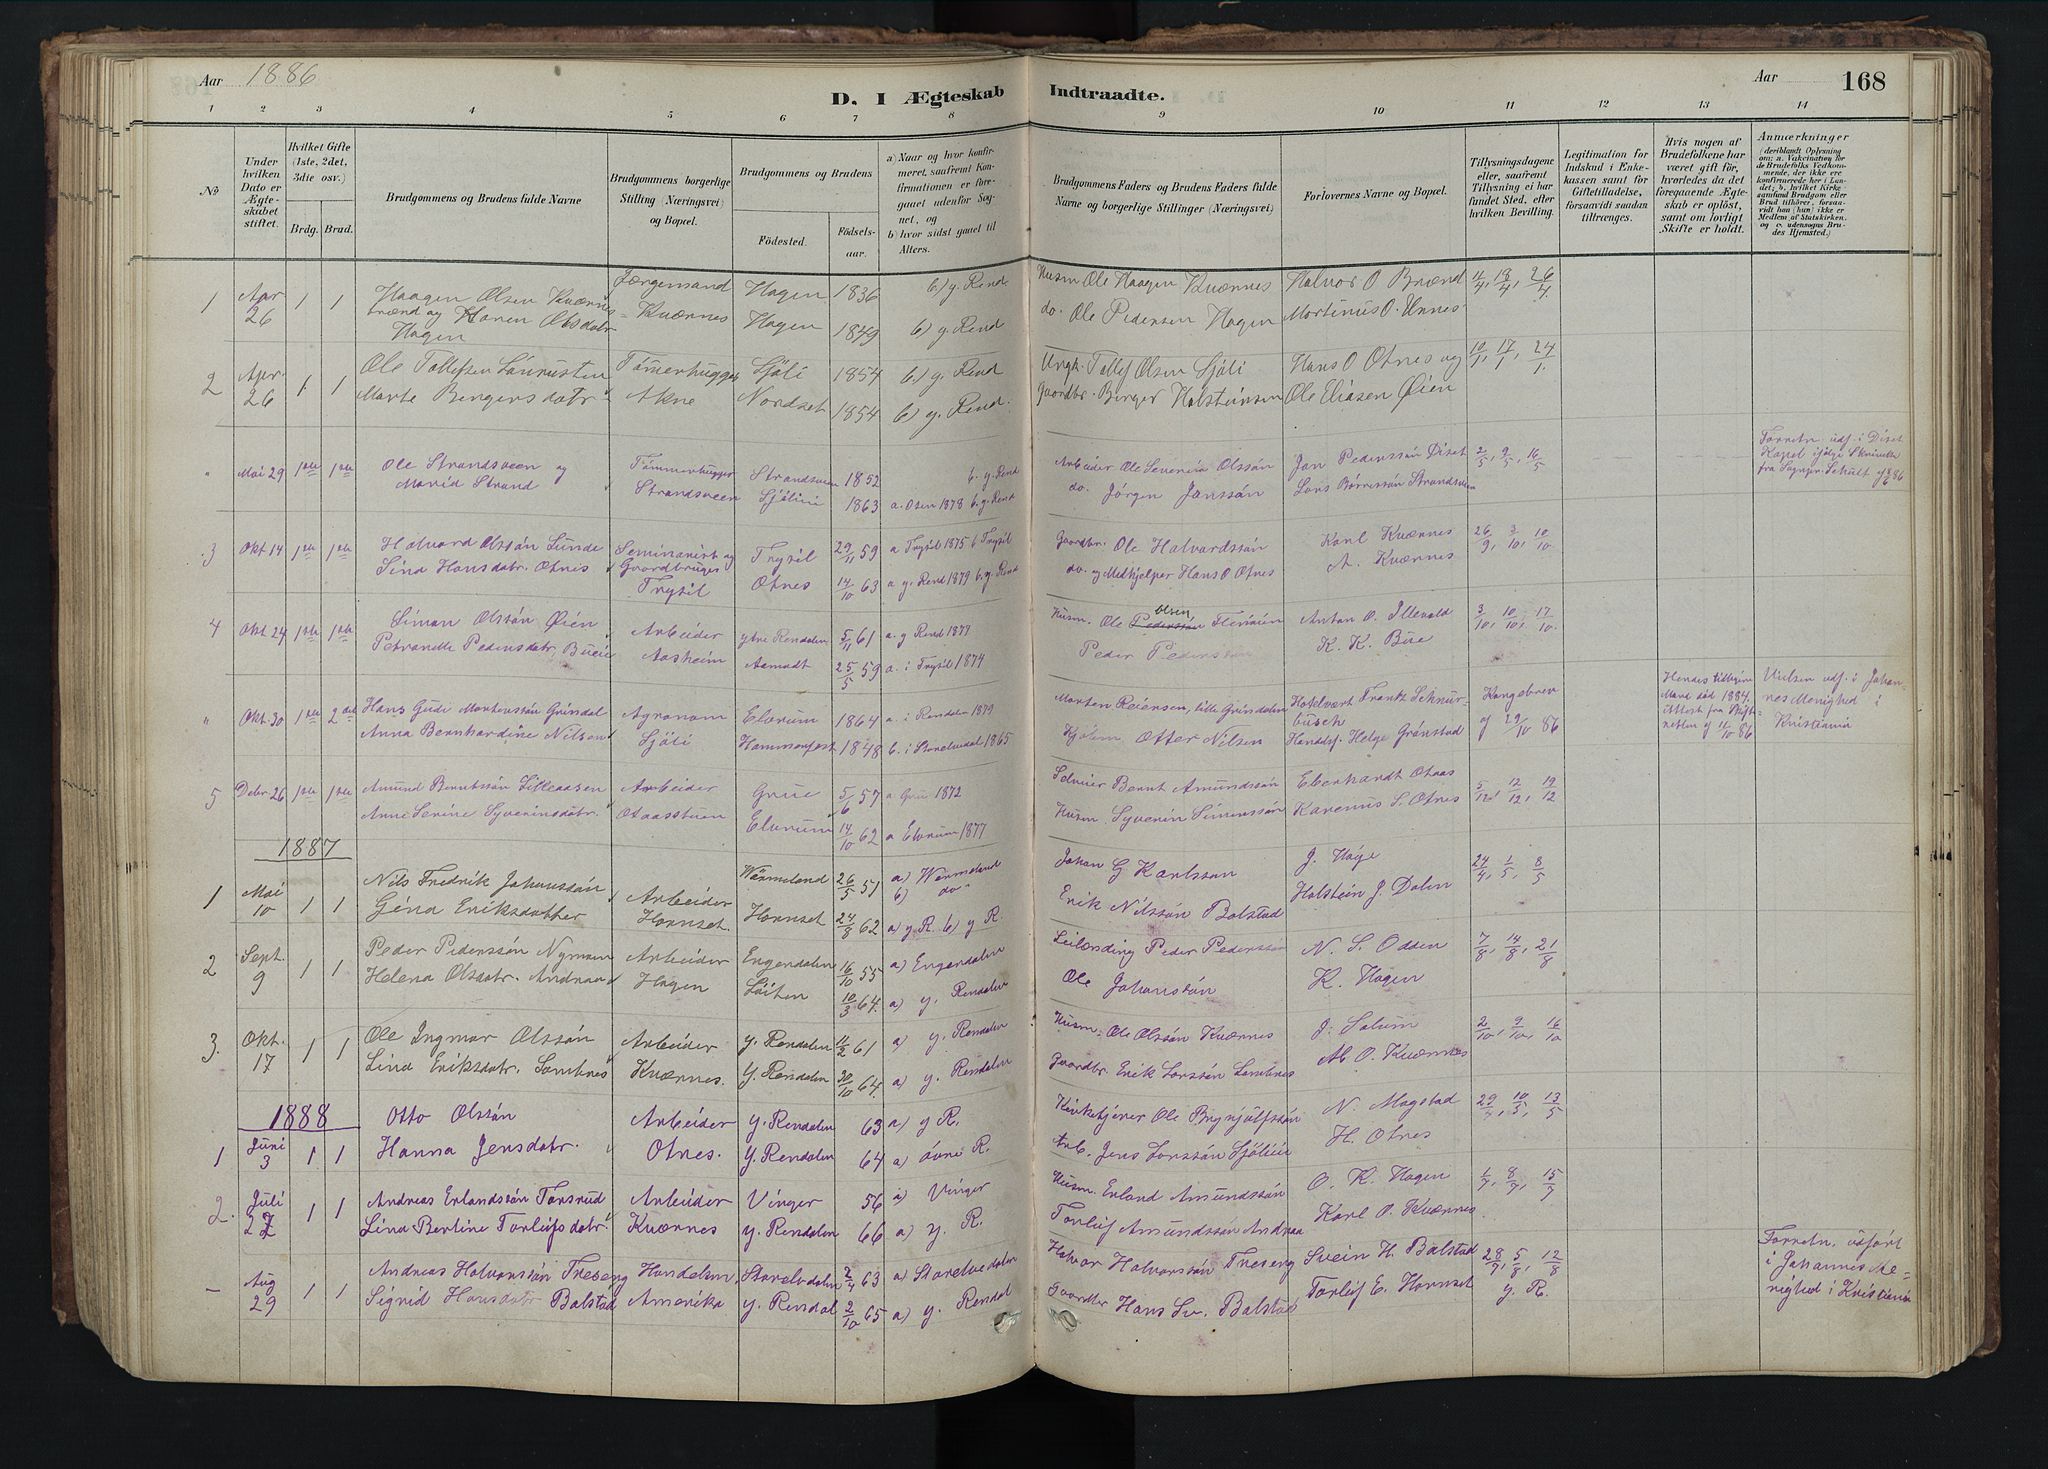 Aar 1886
D. I Ægteskab Indtraadte.
Aar 168
1 2 3 4 5 6 7 8 9 10 11 12 13 14
No
Under hvilken Dato er Ægteskabet stiftet.
Hvilket Gifte (1ste, 2det, 3die osv.)
Brdg. Brud.
Brudgommens og Brudens fulde Navne
Brudgommens borgerlige Stilling (Næringsvei) og Bopæl.
Brudgommens og Brudens
Födested. Födselsaar.
a) Naar og hvor konfirmeret, saafremt Konfirmationen er foregaaet udenfor Sognet, og
b) hvor sidst gaaet til Alters.
Brudgommens Faders og Brudens Faders fulde Navne og borgerlige Stillinger (Næringsvei)
Forlovernes Navne og Bopæl.
Tillysningsdagene eller, saafremt Tillysning ei har fundet Sted, efter hvilken Bevilling.
Legitimation for Indskud i Enkekassen samt for Giftetilladelse, forsaavidt saadan tiltrænges.
Hvis nogen af Brudefolkene har været gift för, hvorledes da det foregaaende Ægteskab er oplöst, samt om lovligt Skifte er holdt.
Anmærkninger
(deriblandt Oplysning om: a. Vaccination for de Brudefolks Vedkommende, der ikke ere konfirmerede her i Landet; b. hvilket Kirkesamfund Brudgom eller Brud tilhörer, forsaavidt han (hun) ikke er Medlem af Statskirken, og c. udensogns Brudes Hjemsted.)
1 Apr 26 1 1 Haagen Olsen Kværnes Hagen 1836 b) y. Rend Husm Ole Haagen Kværnes Halvor O Brænd 4/4, 18/4, 26/4
og Karen Olsdatr Hagen Kværnes Hagen 1849 b) y. Rend do. Ole Pedersen Hagen Martinus O. Unnes
2 Apr. 26 1 1 Ole Tollefsen Tømmerhugger Sjöli 1854 b) y. Rend Ungk. Tollef Olsen Sjöli Hans O Otnes og 10/1, 17/1, 24/1
Marte Bengersdatr Akne Nordset 1854 b) y. Rend. Gaardbr. Berger Halsteinsen Ole Eliasen Øien
" Mai 29 1ste 1ste Ole Strandsveen og Tømmerhugger Strandsveen 1852 b. y. Rend Arbeider Ole Severin Olssön Jon Pederssön Diset 2/5, 9/5, 16/5
Marid Strand Strandsveen Sjöliii 1863 a. Osen 1878 b. y. Rend do. Jörgen Janssön Lars Börressön Strandsveen
Forretn. udf. i Diset Kapel ifölge Skrivelse fra Sogner. Schult
3 Okt 14 1ste 1ste Halvord Olssön Lunde Seminarist og Gaardbruger Trysil 29/11 59 a Trysil 1875 b Trysil Gaardbr. Ole Halvardssön Karl Kværnes 26/9, 3/10, 10/10
Lina Hansdatr. Otnes Trysil Otnes 14/10 63 a y. Rend 1879 b. y. Rend do. og Medhjelper Hans O Otnes A. Kværnes
4 Okt 24 1ste 1ste Simon Olssön Øien Arbeider ytre Rendalen 5/11 61 a. y Rend 1877 Husm. Ole Olsen Anton O. Illevold 3/10, 10/10, 17/10.
Petronelle Pedersdatr. Aasheim Aamodt 25/5 59 a. i Trysil 1874 Peder Pederssön K. K. Bue
" Okt. 30 1ste 2det Hans Gudi Mortenssön Gröndal Agronom Elverum 1864 a. i Rendalen 1879 Morten Reiersen, lille Gröndalen Hotelvært Frantz Schnurbusch Kongebrev
Anna Bernhardine Nilsen Sjöli Hammerfest 1848 b. i Storelvedal 1865 Otter Nilsen Handelsf. Helge Grönstad af 29/10 86
Hendes tidligere Mand död 1884, Attest fra Skifteretten af 11/10 86
Vielsen udf. i Johannes Menighed i Kristiania
5 Debr 26 1ste 1ste Amund Berntssön Lilleaasen Arbeider Grue 5/6 57 a Grue 1872 Selveier Bernt Amundssön Eberhardt Otaas 5/12, 12/12, 19/12
Anne Serine Syverinsdatr. Otaasstuen Elverum 14/10 62 a Elverum 1877 Husm. Syverin Simenssön Karenus S. Otnes
1887
1 Mai 10 1 1 Nils Fredrik Johanssön Arbeider Wermeland 26/5 51 a) Wermeland b) do " Johan G Karlsson J. Hage 24/4, 1/5, 8/5
Gina Eriksdatter Hornset. Hornset 24/8 62 a) y R. b) y R. Erik Nilssön Bolstad Halstein J. Dalen
2 Sept. 9 1 1 Peder Pederssön Nymoen Arbeider Engerdalen 16/10 55 a) Engerdalen Leilænding Peder Pederssön N. S. Odden 7/8, 14/8, 21/8
Helena Olsdatr. Andraa Hagen Löiten 10/3 64. a) y. Rendalen Ole Johanssön K. Hagen
3. Okt. 17 1 1 Ole Ingmar Olssön Arbeider y. Rendalen 11/2 61 a) y. Rendalen Husm. Ole Olssön Kværnes J. Solum 2/10, 9/10, 16/10
Lina Eriksdatr. Lombnes Kværnes. y. Rendalen 30/10 64. a) y. Rendalen Gaardbr. Erik Larssön Lombnes M. O. Kværnes
1888
1 Juni 3 1 1 Otto Olssön Arbeider y. Rendalen 63 a) y R. Kirketjener Ole Brynjulfssön N. Magstad 29/4, 10/5, 13/5
Hanna Jensdatr. Otnes. y. Rendalen 64 a) övre R. Arb. Jens Larssön Sjöliii H. Otnes
2. Juli 27 1 1 Andreas Erlandssön Torsrud Arbeider Vinger 56 a) Vinger Husm. Erland Amundssön O. K. Hagen 1/7, 8/7, 15/7
Lina Bertine Torleifsdatr. Kværnes y. Rendalen 66 a) y. R. Torleif Amundssön Andraa Karl O. Kværnes
- Aug 29 1 1 Andreas Halvorssön Treseng Handelsm. Storelvedalen 2/4 63 a) Storelvedalen Halvor Halvorssön Treseng Svein H. Bolstad 28/7, 5/8, 12/8
Sigrid Hansdatr Bolstad Amerika y. Rendal 2/10 65 a) y. Rendal Gaardbr Hans Sv. Bolstad Torleif E. Hornset y. R.
Forretn. udfört i Johannes Menighed i Kristiania